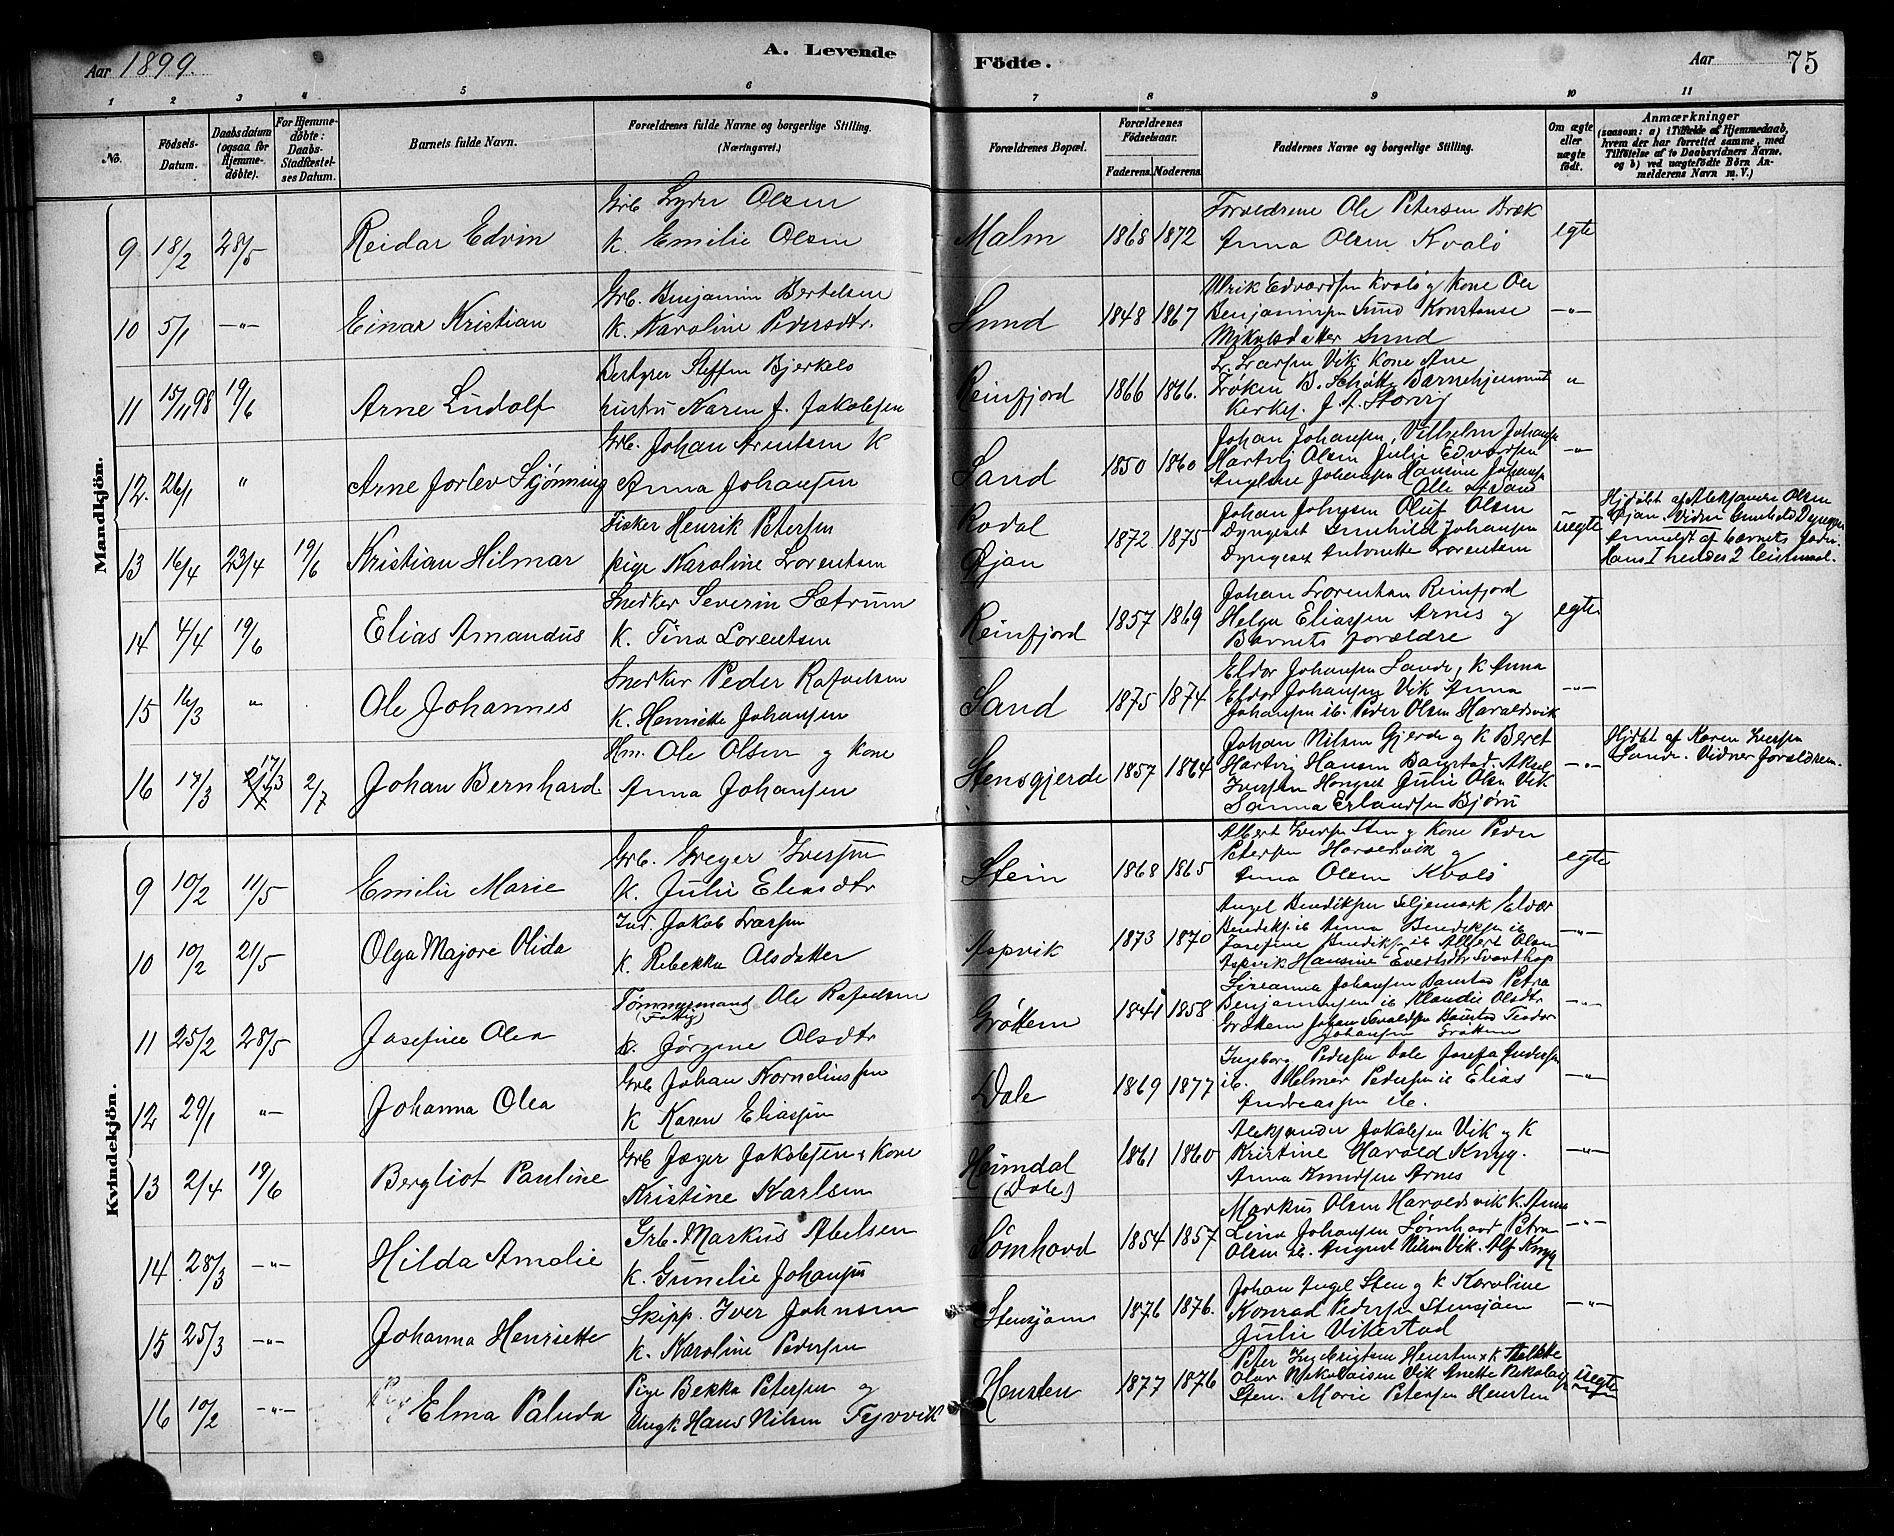 Aar 1899.
A. Levende
Födte.
Aar
75
1 2 3 4 5 6 7 8 9 10 11
No.
Födsels-Datum.
Daabsdatum (ogsaa for Hjemme-døbte).
For Hjemme-døbte: Daabs-Stadfæstel-ses Datum.
Barnets fulde Navn.
Forældrenes fulde Navne og borgerlige Stilling. (Næringsvei.)
Forældrenes Bopæl.
Forældrenes Födselsaar.
Faderens. Moderens.
Faddernes Navne og borgerlige Stilling.
Om ægte eller uægte födt.
Anmærkninger
(saasom: a) i Tilfælde af Hjemmedaab, hvem der har forrettet samme, med Tilføielse af to Daabsvidners Navne, og b) ved uægtefödte Börn An-melderens Navn m. V.)
Mandkjön.
9 18/2 28/5 Reidar Edvin
Grb Lyder Olsen
K. Emilie Olsen
Malm 1868 1872
Forældrene Ole Petersen Bræk
Anna Olsen Kvalö
egte
10 5/1 —"— Einar Kristian
Grb. Benjamin Bertelsen
K. Karoline Pedersdtr.
Sund 1848 1867
Ulrik Edvardsen Kvalö og Kone Ole
Benjaminsen Sund Konstanse
Mikalsdatter Sund
—"—
11 15/11 98 19/6 Arne Ludolf
Bestyrer Steffen Bjerkelo
hustru Karen J. Jakobsen
Reinfjord 1866 1866.
L. Larsen Vik Kone Ane
Frøken B. Schøtte Barnehjemmet
Kerkes. J. A. Storvig
"
12. 26/1 " Arne Jorlev Skjønning
Grb. Johan Arentsen K
Anna Johansen
Sand 1850 1860
Johan Johansen, Vilhelm Johansen
Hartvig Olsen Julie Edvardsen
Angelsine Johansen Hansine Johansen
Alle af Sand
—"—
13 16/4 23/4 19/6 Kristian Hilmar
Fisker Henrik Petersen
pige Karoline Lorentsen
Rodal
Øjan
1872 1875
Johan Johnsen Oluf Olsen
Dyngeset Gunhild Johansen
Dyngeset Antonette Lorentsen
uegte
Hjdøbt af Aleksander Olsen
Øjan. Vidner Gunhild Dyngesen
Anmeldt af barnets fader.
Hans I hendes 2 leiermaal.
14 4/4 19/6 Elias Amandus
Snedker Severin Sætrum
K. Tina Lorentsen
Reinfjord 1857 1869
Johan Lorentsen Reinfjord
Helga Eliassen Arnes og
Barnets forældre
egte
15 16/3 " Ole Johannes
Snedker Peder Rafaelsen
K. Henriette Johansen
Sand 1875 1874
Eldor Johansen Sande, K Anna
Eldor Johansen Vik Anna
Johansen ib. Peder Olsen Haraldsvik
—"—
16 17/3 17/3 2/7 Johan Bernhard
Hm. Ole Olsen og Kone
Anna Johansen
Stensgjerde 1857 1864
Johan Nilsen Gjerde og K Beret
Hartvig Hansen Baustad. Aksel
Iversen Hongset Julie Olsen Vik
Sanna Erlandsen Björu
—"—
Hjdbt af Karen Iversen
Sandv. Vidner forældrene.
Kvindekjön.
9 10/2 11/5 Emilie Marie
Grb. Greger Iversen
K. Julie Eliasdtr
Stein 1868 1865
Albert Iversen Sten og Kone Peder
Petersen Horsensvik og
Anna Olsen Kvalö
egte
10 10/2 21/5 Olga Majore Olida
Ind. Jakob Larsen
K. Rebekka Olsdatter
Aspvik 1873 1870
Angel Benediksen Seljemark Eldor
Bendiks. ib Anna Bendiksen ib
Josefine Bendiks. ib Albert Olsen
Aspvik Hansine Evertsdtr Svarthop
—"—
11 25/2 28/5 Josefine Olea
Tømmermand Ole Rafaelsen
(Fattig)
K. Jørgine Olsdtr
Gröttem 1841 1858
Sireanna Johansen Baustad Petra
Benjaminsen ib Klaudie Olsdtr
Gröttem Johan Baustad Teodor
Johansen Gröttem
—"—
12 29/1 —"— Johanna Olea
Grb Johan Korneliussen
K Karen Eliassen
Dale 1869 1877
Ingeborg Pedersen Dale Josefa Andersen
ib. Helmer Pedersen ib Elias
Andreassen ib.
—"—
13 2/4 19/6 Bergliot Pauline
Grb Jæger Jakobsen & Kone
Kristine Karlsen
Heimdal
(Dale)
1861 1860
Aleksander Jakobsen Vik og K
Kristine Harald Knyg.
Anna Knudsen Arnes
—"—
14 28/3 —"— Hilda Amalie
Grb. Markus Abelsen
K. Gunelie Johansen
Sømhovd 1854 1857
Markus Olsen Haraldsvik K. Anna
Lina Johansen Sømhovd Petra
Olsen ib. August Nilsen Vik. Alf Knyg
—"—
15 25/3 —"— Johanna Henriette
Skipp. Iver Johnsen
K. Karoline Pedersen
Stensjöen 1876 1876.
Johan Angel Sten og K Karoline
Konrad Pedersen Stensjöen
Julie Vikestad
—"—
16 10/2 —"— Elma Paluda
Pige Bekka Petersen og
Ungk Hans Nilsen Fjrvik
Hensten 1877 1876
Peter Ingebrigtsen Hensten & K
Olav Nikolaisen Vik Anette Nikolais
Sten. Marie Petersen Hensten
uegte